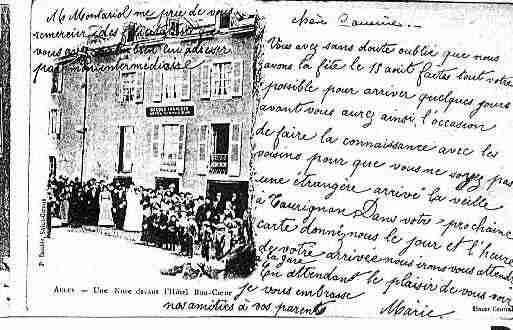 Mr Montariol me prie de vous
remercier des
vous avez bien lui adresser
par mon intermédiaire
Chère Laurence..
Vous avez sans doute oublié que nous
avons la fête le 15 août faites tout votre
possible pour arriver quelques jours
avant vous aurez ainsi l'occasion
de faire la connaissance avec les
voisins pour que vous ne soyez pas
une étrangère arrivé la veille
à Taurignan Dans votre prochaine
carte donnez nous le jour et l'heure
de votre arrivée nous irons vous attendre
à la gare
En attendant le plaisir de vous voir
je vous embrasse
Marie.
nos amitiés à vos parents
AULUS — Une Noce devant l'Hôtel Bon-Cœur